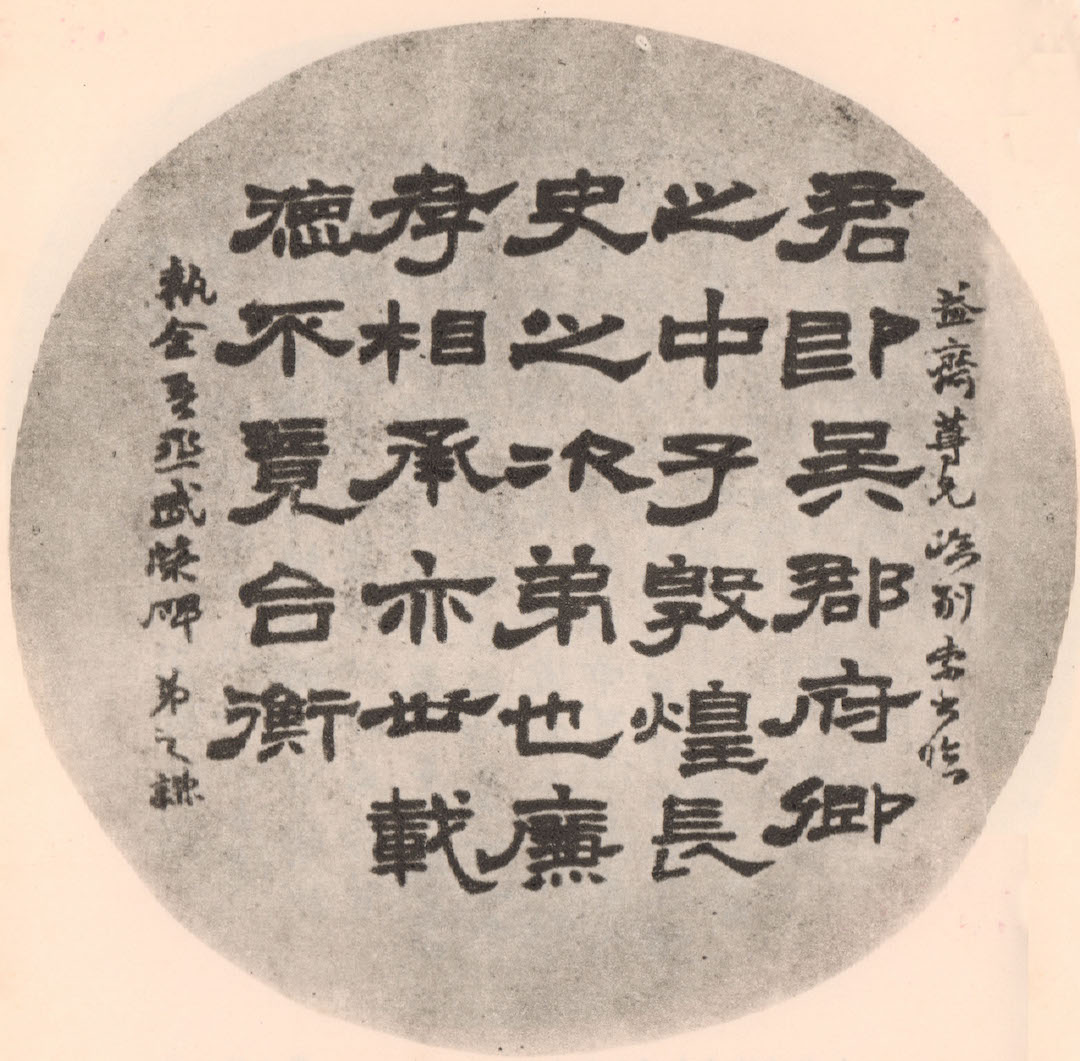 益齋尊兄臨別索書臨
君即吳郡府卿
之中子敦煌長
史之次弟也廉
孝相承亦世載
德不忝台衡
執金吾丞武榮碑 弟之謙